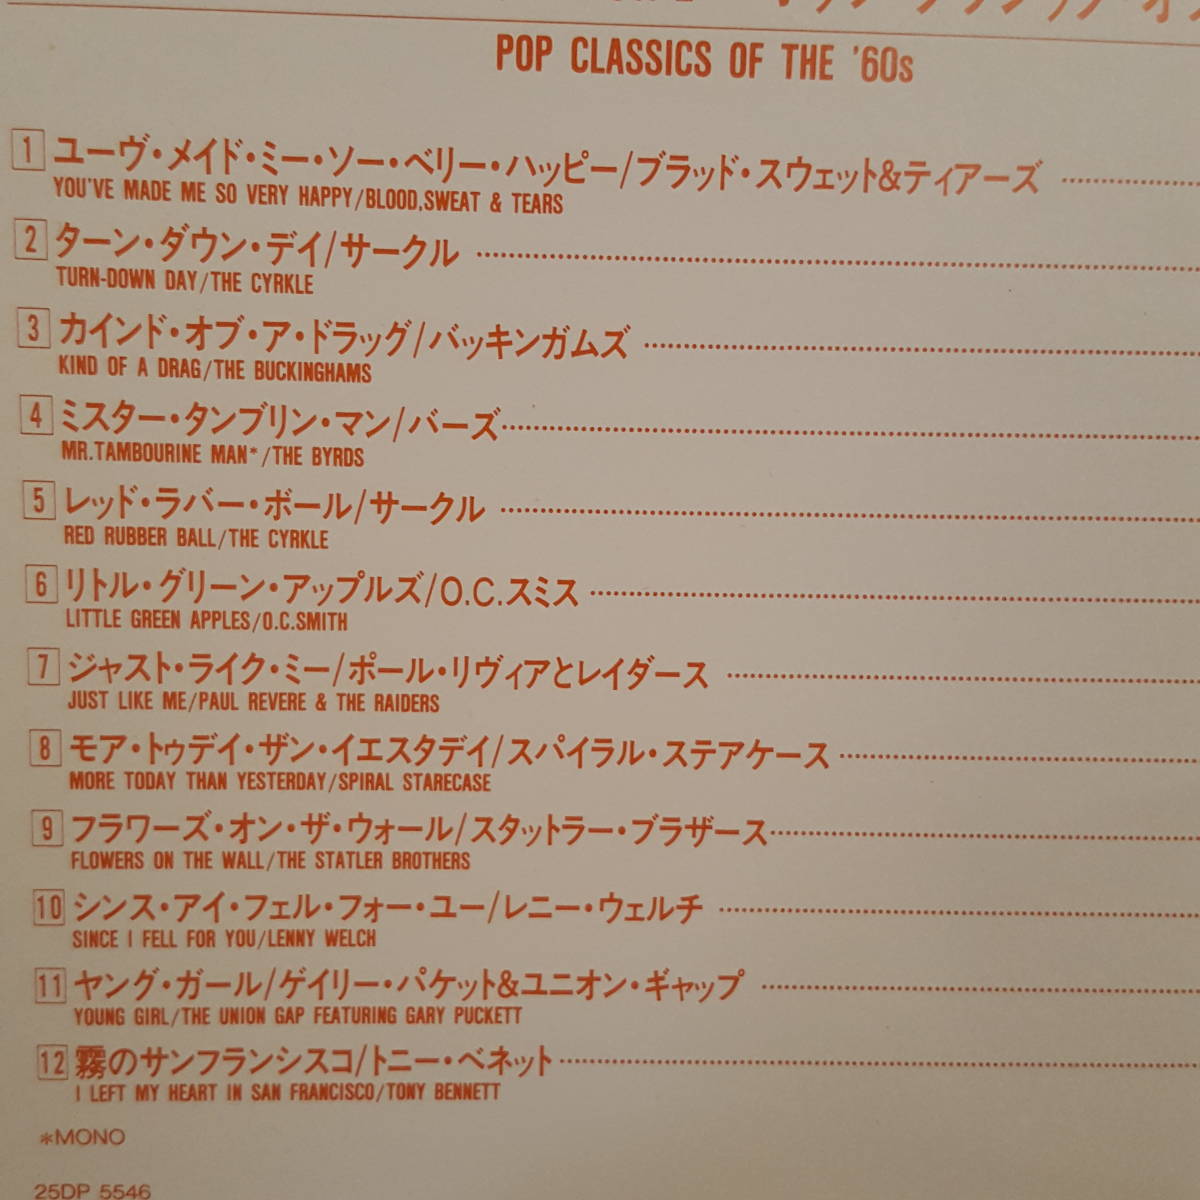 POP CLASSICS OF THE '60s
1 ユーヴ・メイド・ミー・ソー・ベリー・ハッピー/ブラッド・スウェット&ティアーズ
YOU'VE MADE ME SO VERY HAPPY/BLOOD,SWEAT & TEARS
2 ターン・ダウン・デイ/サークル
TURN-DOWN DAY/THE CYRKLE
3 カインド・オブ・ア・ドラッグ/バッキンガムズ
KIND OF A DRAG/THE BUCKINGHAMS
4 ミスター・タンブリン・マン/バーズ
MR.TAMBOURINE MAN*/THE BYRDS
5 レッド・ラバー・ボール/サークル
RED RUBBER BALL/THE CYRKLE
6 リトル・グリーン・アップルズ/O.C.スミス
LITTLE GREEN APPLES/O.C.SMITH
7 ジャスト・ライク・ミー/ポール・リヴィアとレイダース
JUST LIKE ME/PAUL REVERE & THE RAIDERS
8 モア・トゥデイ・ザン・イエスタデイ/スパイラル・ステアケース
MORE TODAY THAN YESTERDAY/SPIRAL STARECASE
9 フラワーズ・オン・ザ・ウォール/スタットラー・ブラザース
FLOWERS ON THE WALL/THE STATLER BROTHERS
10 シンス・アイ・フェル・フォー・ユー/レニー・ウェルチ
SINCE I FELL FOR YOU/LENNY WELCH
11 ヤング・ガール/ゲイリー・パケット&ユニオン・ギャップ
YOUNG GIRL/THE UNION GAP FEATURING GARY PUCKETT
12 霧のサンフランシスコ/トニー・ベネット
I LEFT MY HEART IN SAN FRANCISCO/TONY BENNETT
*MONO
25DP 5546